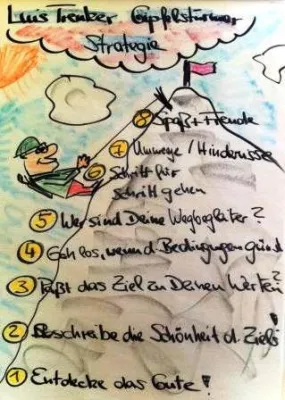 Luis Trenker Gipfelstürmer
Strategie
8 Spaß + Freude
7 Umwege / Hindernisse
6 Schritt für
Schritt gehen
5 Wer sind Deine Wegbegleiter?
4 Geh los, wenn d. Bedingungen günst
3 Paßt das Ziel zu Deinen Werten?
2 Beschreibe die Schönheit d. Ziels
1 Entdecke das Gute!